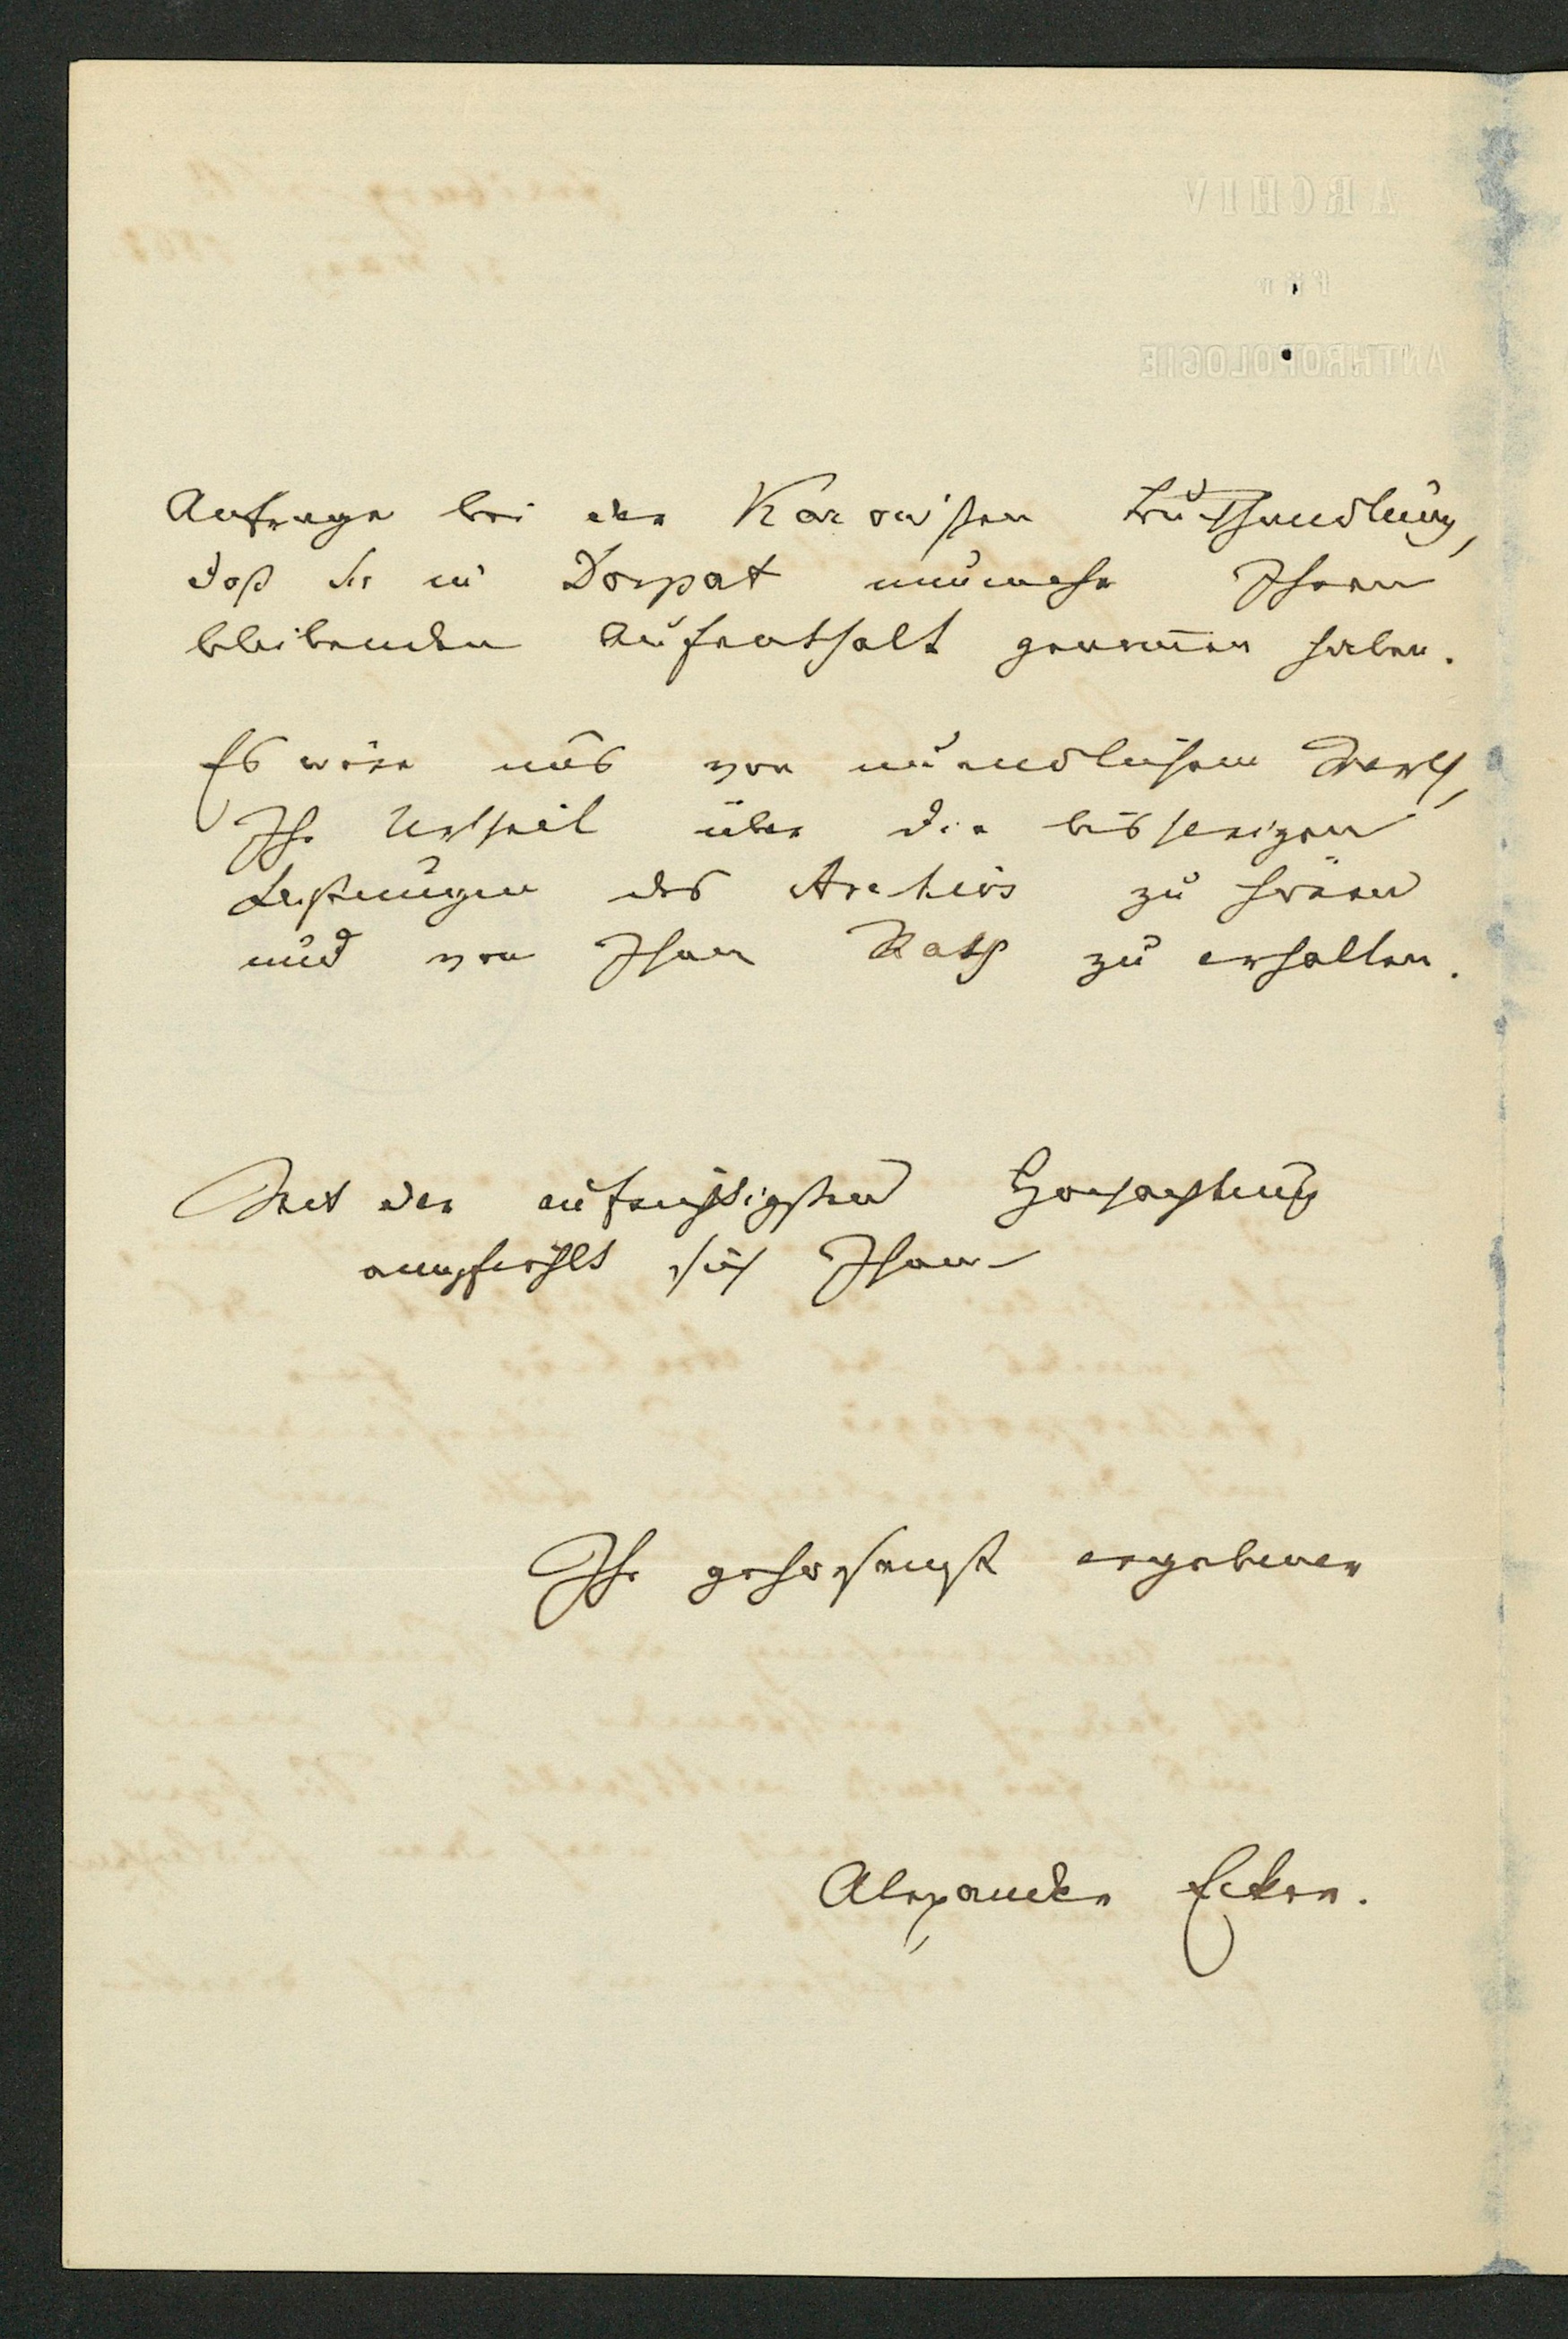 Anfrage bei der Karowschen Buchhandlung,
daß Sie in Dorpat nunmehr Ihren
bleibenden Aufenthalt genommen haben.
Es wäre uns von unendlichem Werth,
Ihr Urtheil über die bisherigen
Leistungen des Archivs zu hören
und von Ihnen Rath zu erhalten.
Mit der aufrichtigsten Hochachtung
empfiehlt sich Ihnen
Ihr gehorsamst ergebener
Alexander Ecker.